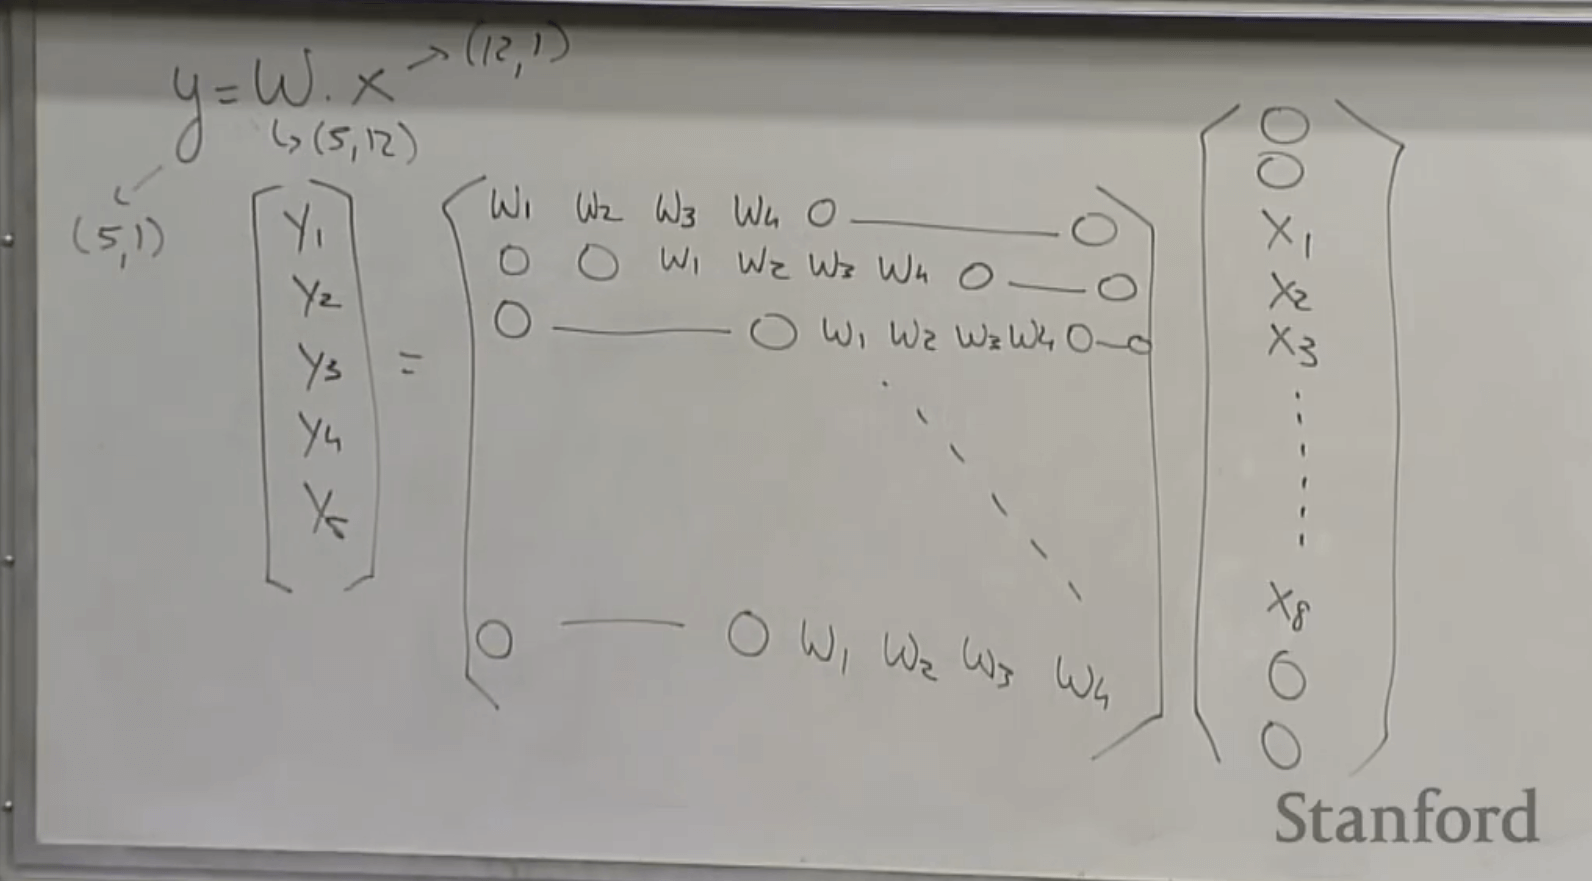 y = W . x → (12,1)
↳ (5,12)
(5,1)
y1
y2
y3
y4
y5
=
W1 W2 W3 W4 0 — 0
0 0 W1 W2 W3 W4 0 — 0
0 — 0 W1 W2 W3 W4 0 — 0
0 — 0 W1 W2 W3 W4
0
0
x1
x2
x3
x8
0
0
Stanford